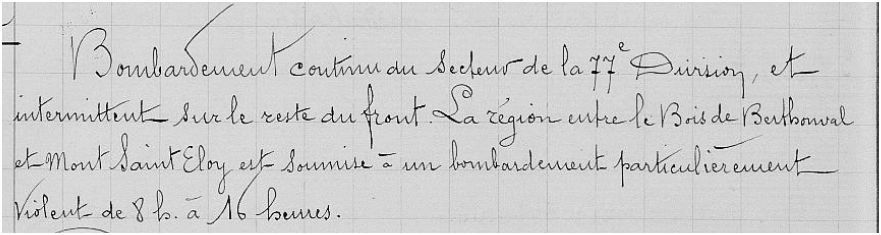 Bombardement continu du secteur de la 77e Division, et
intermittent sur le reste du front. La région entre le Bois de Berthonval
et Mont Saint Eloy est soumise à un bombardement particulièrement
violent de 8 h. à 16 heures.